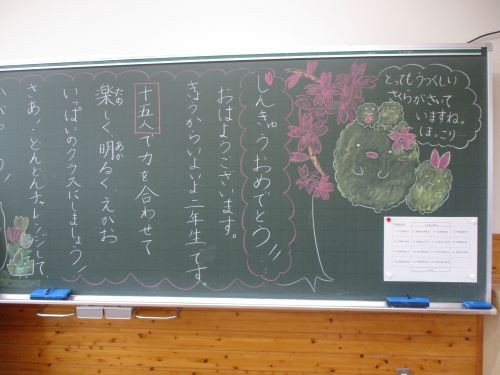 しんきゅうおめでとう!!
おはようございます。
きょうからいよいよ二年生です。
十五人で力を合わせて
楽しく明るくえがお
たの
あか
いっぱいのクラスにしましょう!
さあ、どんどんチャレンジして、
とってもうつくしい
さくらがさいて
いますね。
ほっこり…